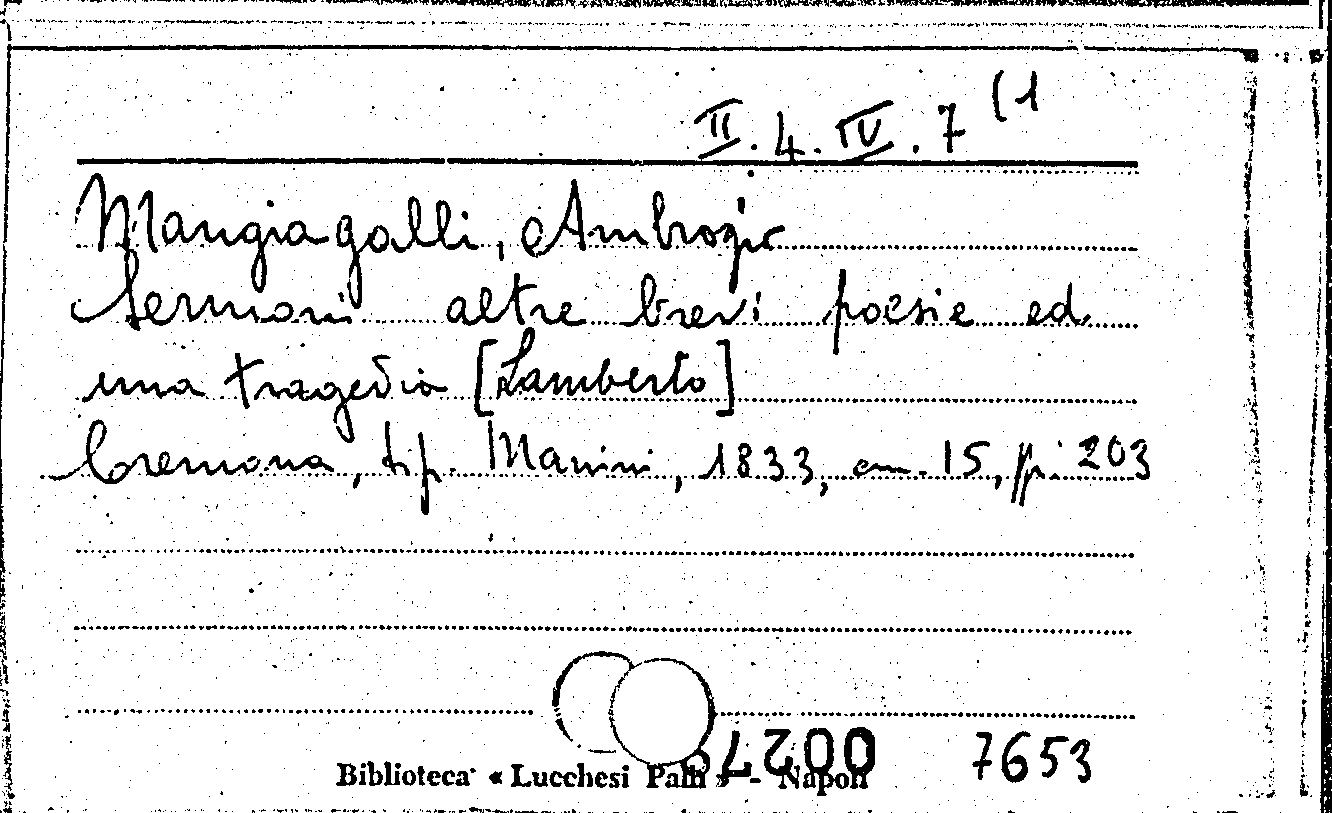 II.4.IV.7 (1
Mangiagalli, Ambrogio
Sermoni altre brevi poesie ed
una tragedia [Lamberto]
Cremona, tip. Manini, 1833, cm. 15, pp. 203
7653
Biblioteca « Lucchesi Palli » - Napoli